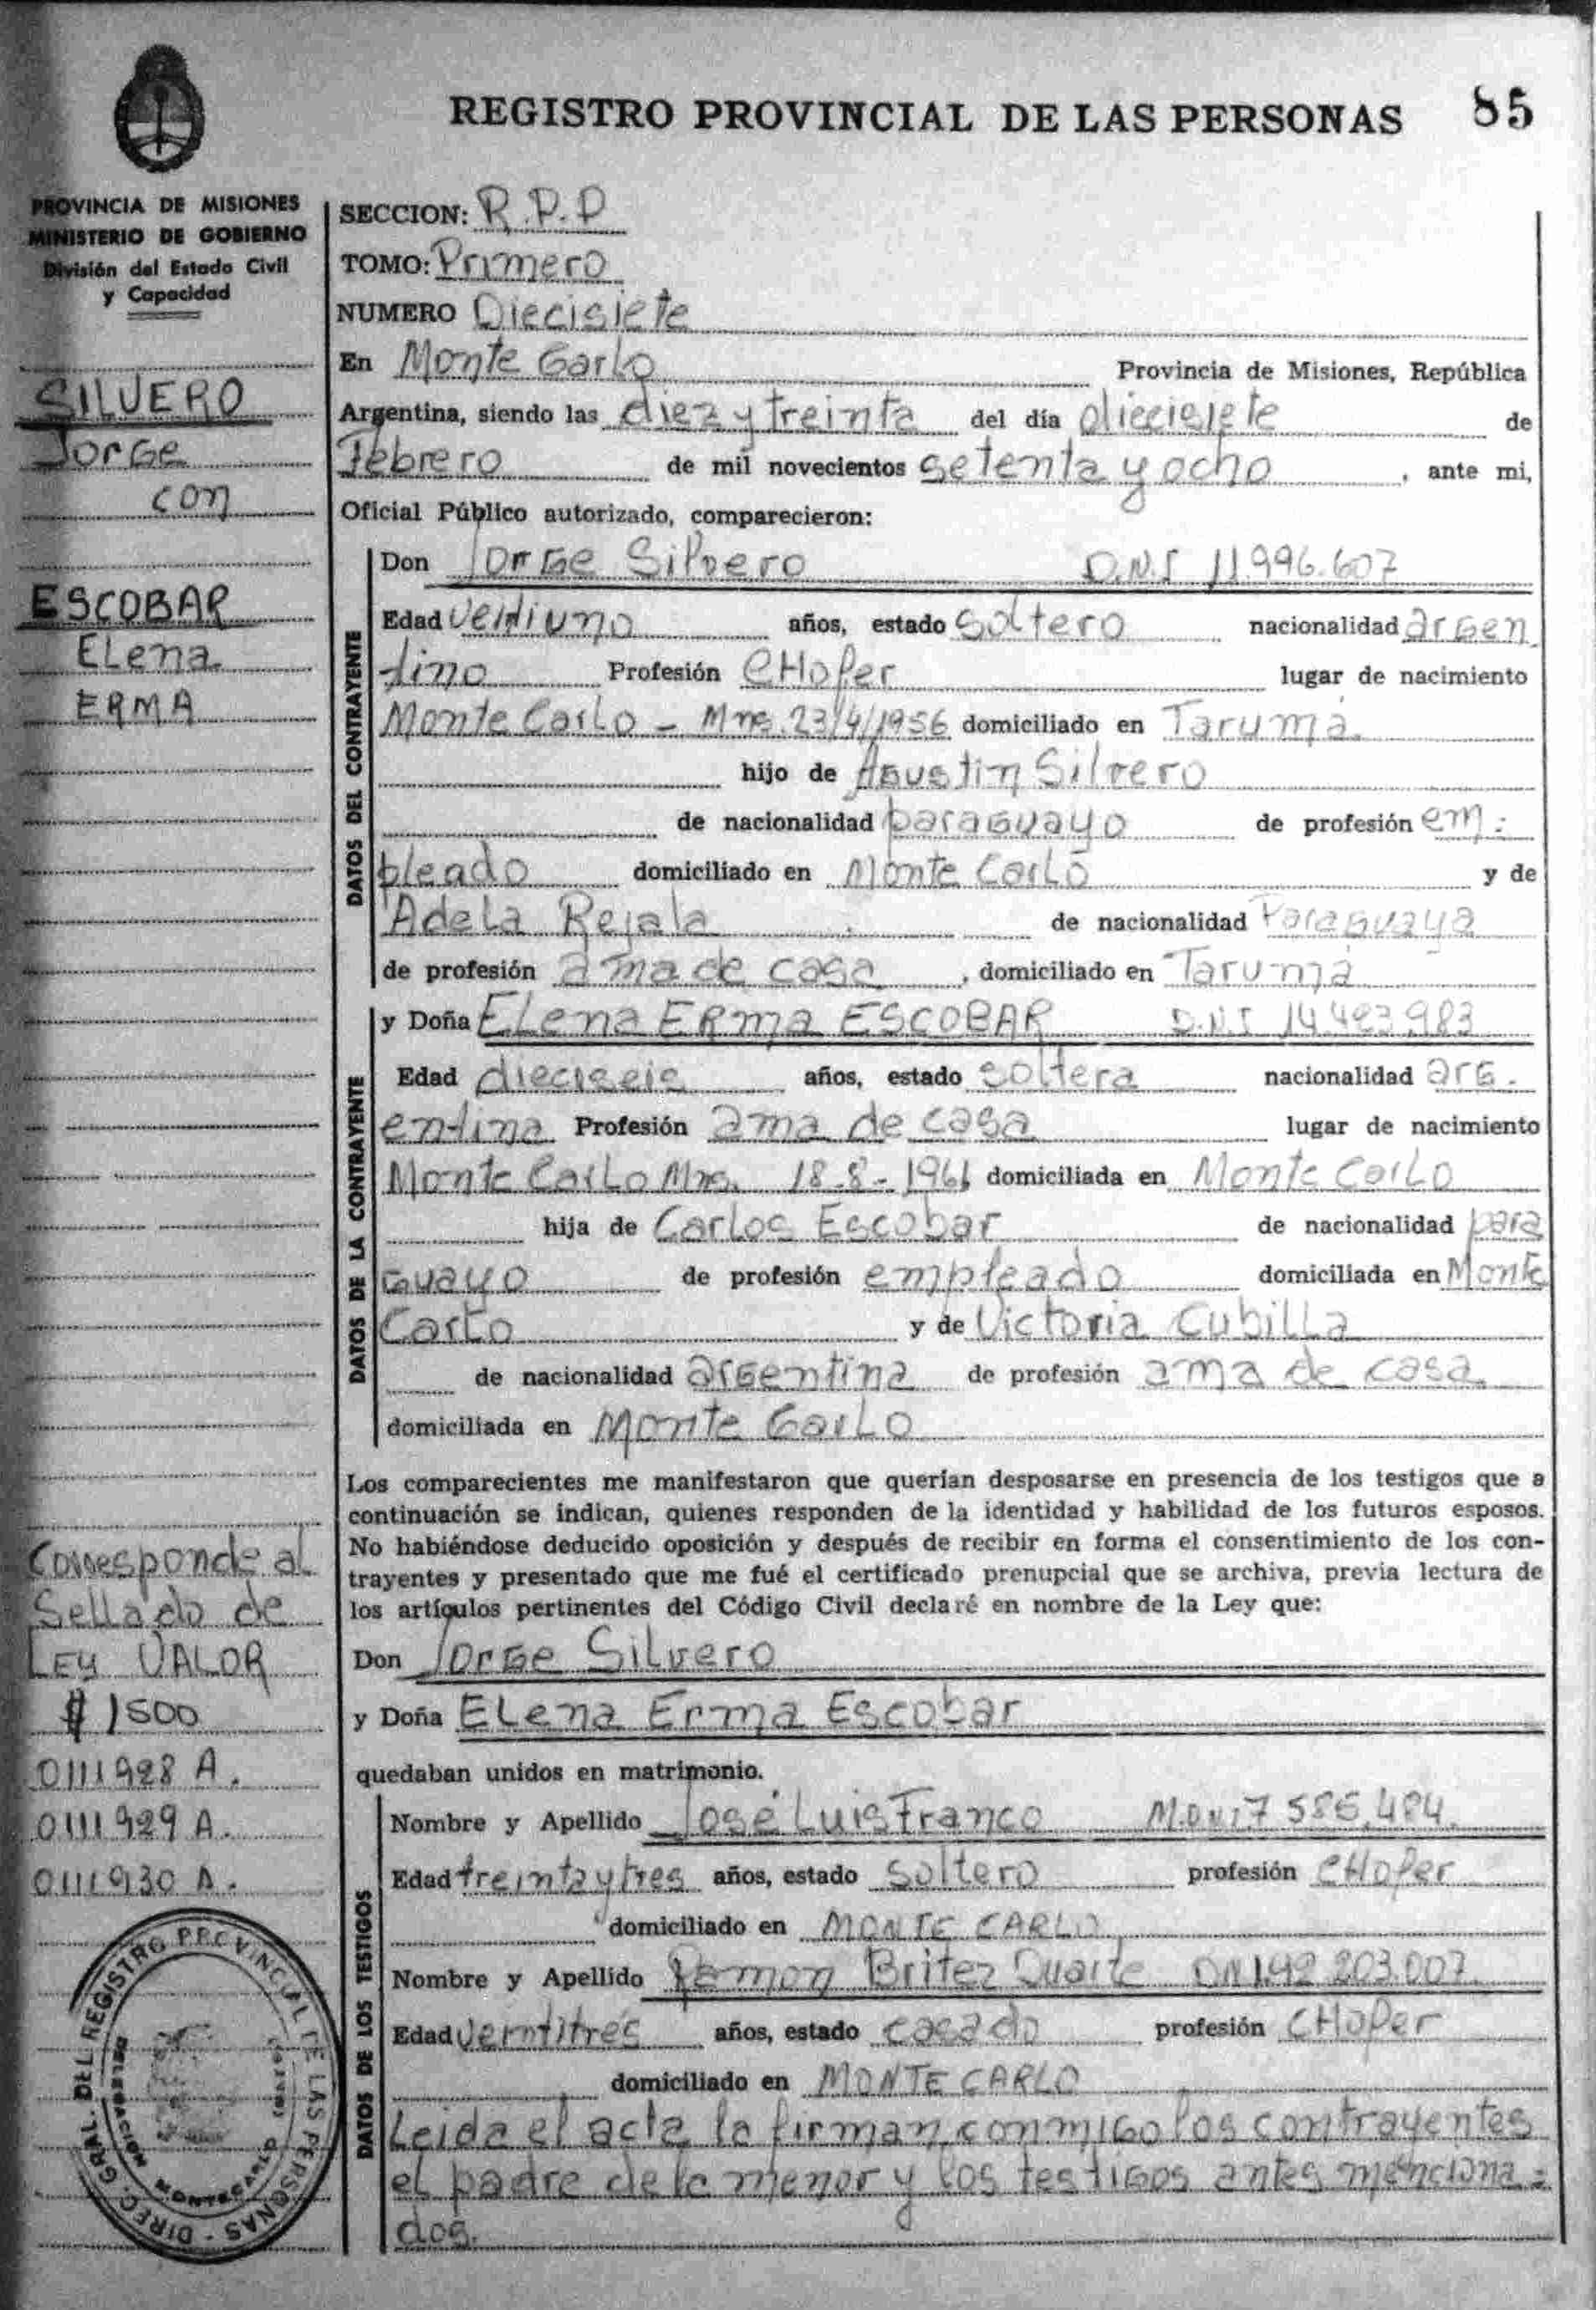 REGISTRO PROVINCIAL DE LAS PERSONAS 85
PROVINCIA DE MISIONES
MINISTERIO DE GOBIERNO
División del Estado Civil
y Capacidad
SILVERO
Jorge
con
ESCOBAR
Elena
ERMA
Corresponde al
Sellado de
Ley VALOR
$ 1500
0111928 A.
0111929 A.
0111930 A.
DIREC. GRAL. DEL REGISTRO PROVINCIAL DE LAS PERSONAS
MONTECARLO
SECCION: R.P.P
TOMO: Primero
NUMERO Diecisiete
En Monte Carlo Provincia de Misiones, República
Argentina, siendo las diez y treinta del día diecisiete de
Febrero de mil novecientos setenta y ocho, ante mi,
Oficial Público autorizado, comparecieron:
DATOS DEL CONTRAYENTE
Don Jorge Silvero D.N.I 11.996.607
Edad veintiuno años, estado soltero nacionalidad argen
tino Profesión CHofer lugar de nacimiento
Monte Carlo - Mnes. 23/4/1956 domiciliado en Tarumá
hijo de Agustin Silvero
de nacionalidad paraguayo de profesión em:
pleado domiciliado en Monte Carlo y de
Adela Rejala de nacionalidad Paraguaya
de profesión ama de casa, domiciliado en Tarumá
DATOS DE LA CONTRAYENTE
y Doña Elena ERma ESCOBAR D.N.I 14.483.983
Edad dieciseis años, estado soltera nacionalidad arg.
entina Profesión ama de casa lugar de nacimiento
Monte Carlo Mns. 18-8-1961 domiciliada en Monte Carlo
hija de Carlos Escobar de nacionalidad para
guayo de profesión empleado domiciliada en Monte
Carlo y de Victoria Cubilla
de nacionalidad argentina de profesión ama de casa
domiciliada en Monte Carlo
Los comparecientes me manifestaron que querían desposarse en presencia de los testigos que a
continuación se indican, quienes responden de la identidad y habilidad de los futuros esposos.
No habiéndose deducido oposición y después de recibir en forma el consentimiento de los con-
trayentes y presentado que me fué el certificado prenupcial que se archiva, previa lectura de
los artículos pertinentes del Código Civil declaré en nombre de la Ley que:
Don Jorge Silvero
y Doña Elena Erma Escobar
quedaban unidos en matrimonio.
DATOS DE LOS TESTIGOS
Nombre y Apellido José Luis Franco
Edad treinta y tres años, estado soltero profesión CHofer
domiciliado en MONTE CARLO
Nombre y Apellido Ramon Britez Duarte DNI. 92 203.007
Edad veintitres años, estado casado profesión CHofer
domiciliado en MONTE CARLO
Leida el acta la firman conmigo los contrayentes
el padre de la menor y los testigos antes menciona:
dos.